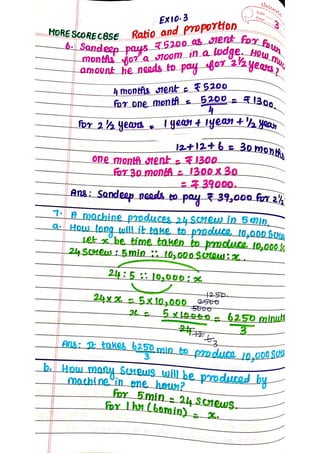 EX10.3
3
MORESCORECBSE Ratio and proportion
6. Sandeep pays ₹5200 as rent for four
months for a room in a lodge. How much
amount he needs to pay for 2½ years?
4 months rent = ₹5200
For one month = 5200/4 = ₹1300.
For 2½ years = 1 year + 1 year + ½ year
12+12+6 = 30 months
one month rent = ₹1300
For 30 month = 1300 x 30
= ₹39000.
Ans: Sandeep needs to pay ₹39,000 for 2½
7. A machine produces 24 screw in 5 min.
a. How long will it take to produce 10,000 Screw
Let x be time taken to produce 10,000 Sc
24 Screw : 5 min :: 10,000 Screw : x.
24 : 5 :: 10,000 : x
24 x x = 5 x 10,000
x = 5 x 10000/24 = 6250/3 minute
1250
2500
5000
12 6 3
Ans: It takes 6250/3 min to produce 10,000 Scre
b. How many Screws will be produced by
machine in one hour?
For 5min = 24 Screws.
For 1 hr (60min) = x.